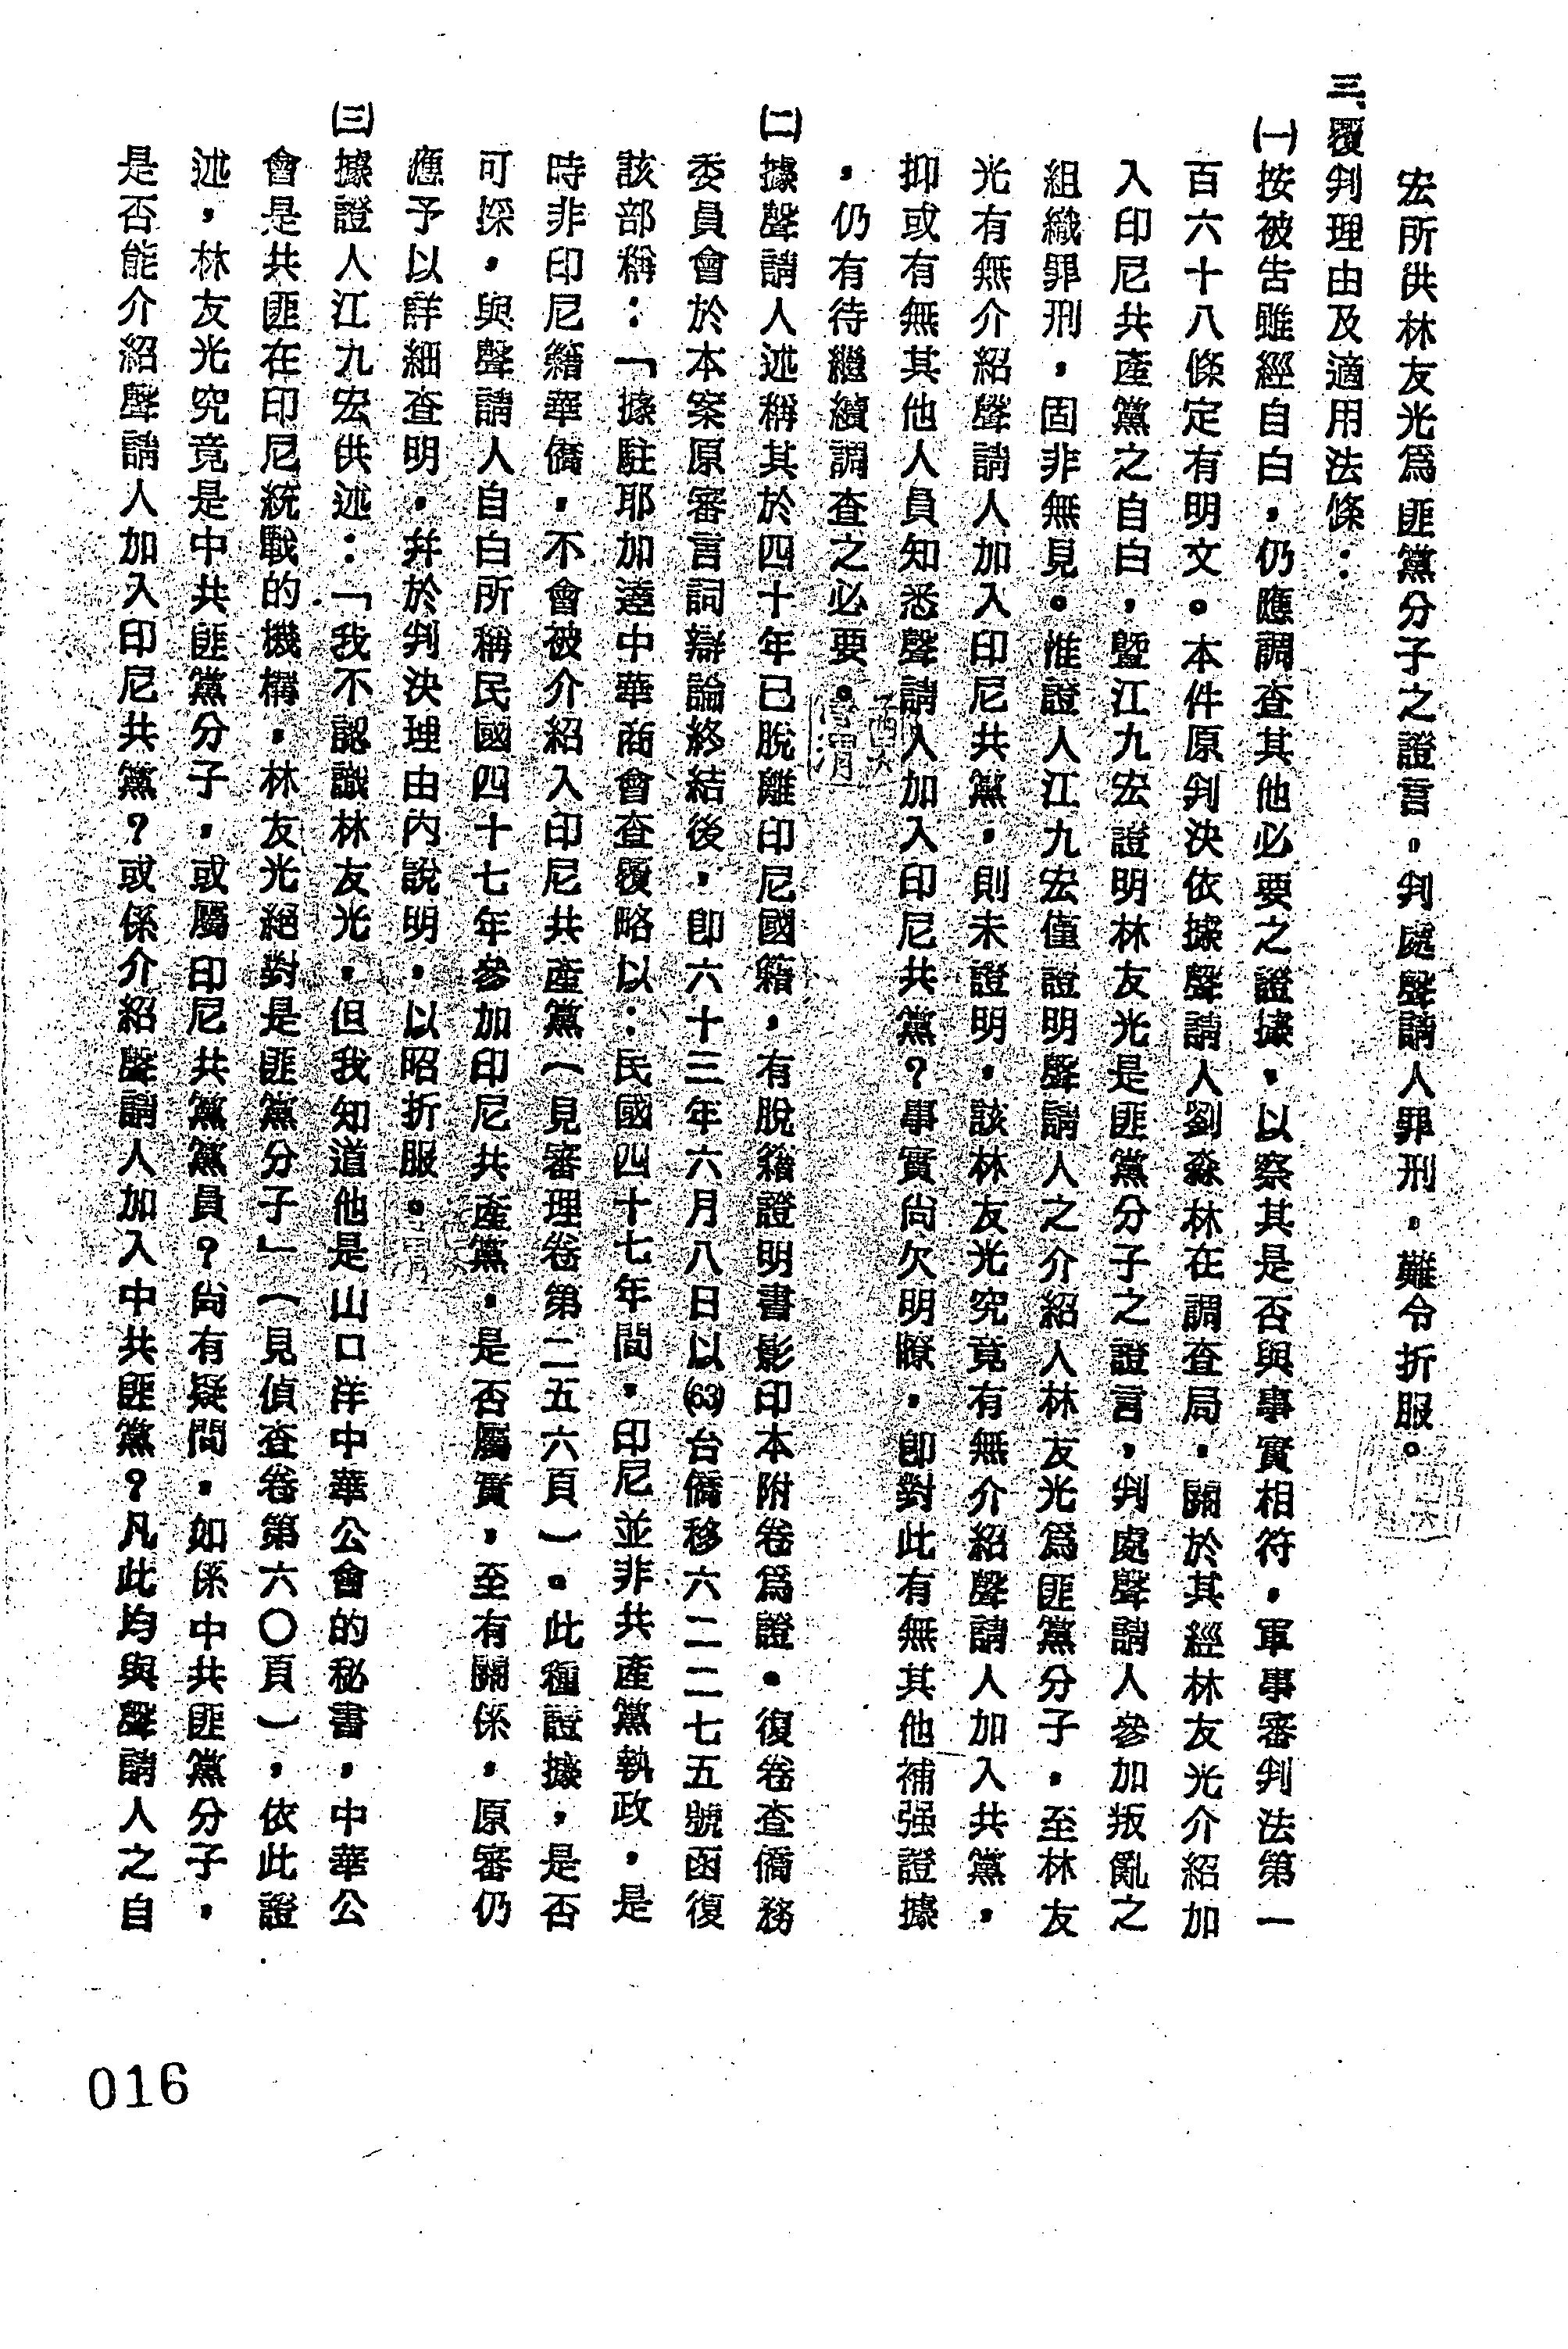 宏所供林友光為匪黨分子之證言,判處聲請人罪刑,難令折服。
三、覆判理由及適用法條:
㈠按被告雖經自白,仍應調查其他必要之證據,以察其是否與事實相符,軍事審判法第一
百六十八條定有明文。本件原判決依據聲請人劉淼林在調查局,關於其經林友光介紹加
入印尼共產黨之自白,暨江九宏證明林友光是匪黨分子之證言,判處聲請人參加叛亂之
組織罪刑,固非無見。惟證人江九宏僅證明聲請人之介紹人林友光為匪黨分子,至林友
光有無介紹聲請人加入印尼共黨,則未證明,該林友光究竟有無介紹聲請人加入共黨,
抑或有無其他人員知悉聲請人加入印尼共黨?事實尚欠明瞭,即對此有無其他補强證據
,仍有待繼續調查之必要。
㈡據聲請人述稱其於四十年已脫離印尼國籍,有脫籍證明書影印本附卷為證。復卷查僑務
委員會於本案原審言詞辯論終結後,即六十三年六月八日以(63)台僑移六二二七五號函復
該部稱:「據駐耶加達中華商會查覆略以:民國四十七年間,印尼並非共產黨執政,是
時非印尼籍華僑,不會被介紹入印尼共產黨(見審理卷第二五六頁)。此種證據,是否
可採,與聲請人自白所稱民國四十七年參加印尼共產黨,是否屬實,至有關係,原審仍
應予以詳細查明,并於判決理由內說明,以昭折服。
㈢據證人江九宏供述:「我不認識林友光,但我知道他是山口洋中華公會的秘書,中華公
會是共匪在印尼統戰的機構,林友光絕對是匪黨分子」(見偵查卷第六〇頁),依此證
述,林友光究竟是中共匪黨分子,或屬印尼共黨黨員?尚有疑問,如係中共匪黨分子,
是否能介紹聲請人加入印尼共黨?或係介紹聲請人加入中共匪黨?凡此均與聲請人之自
016